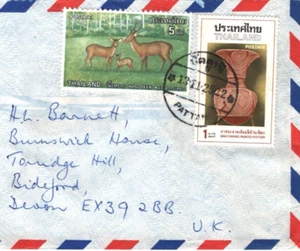 5
ประเทศไทย
THAILAND
ประเทศไทย
THAILAND
POSTAGE
1
PATT
Hh. Barnett,
Brunswick House,
Torridge Hill,
Bideford,
Devon EX39 2BB.
U.K.